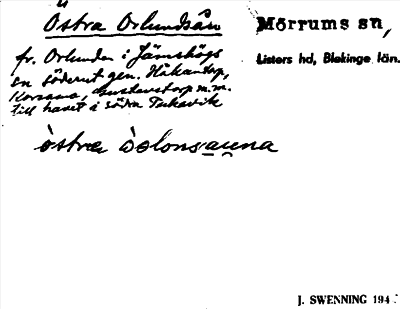 Östra Orlundsån
Mörrums sn,
Listers hd, Blekinge län.
fr. Orlunden i Jämshögs
sn söderut gen. Håkantorp,
Korsanäs, Gustavstorp m.m.
till havet i södra Tuksvik
östra
J. SWENNING 194